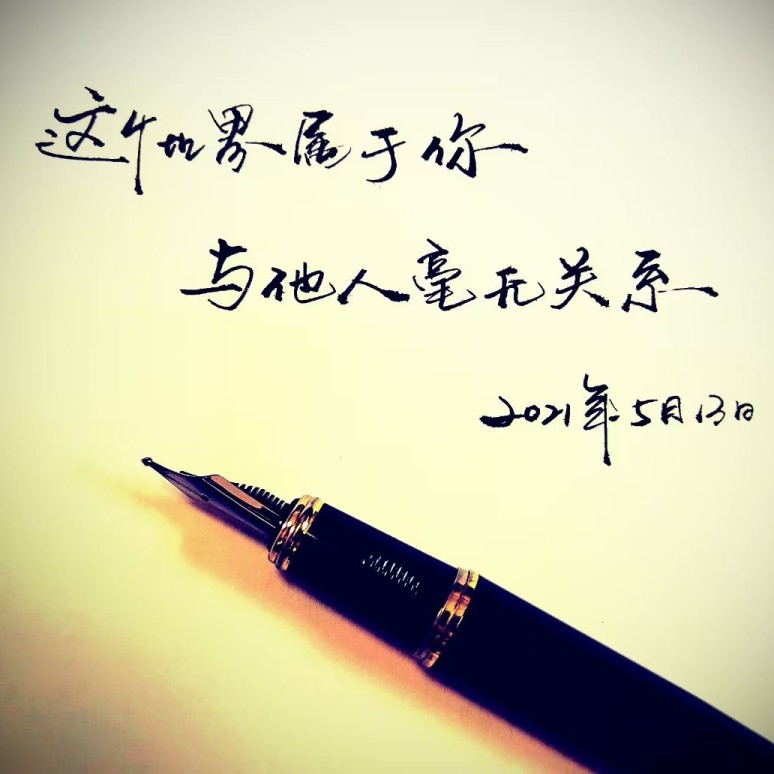 这个世界属于你
与他人毫无关系
2021年5月13日